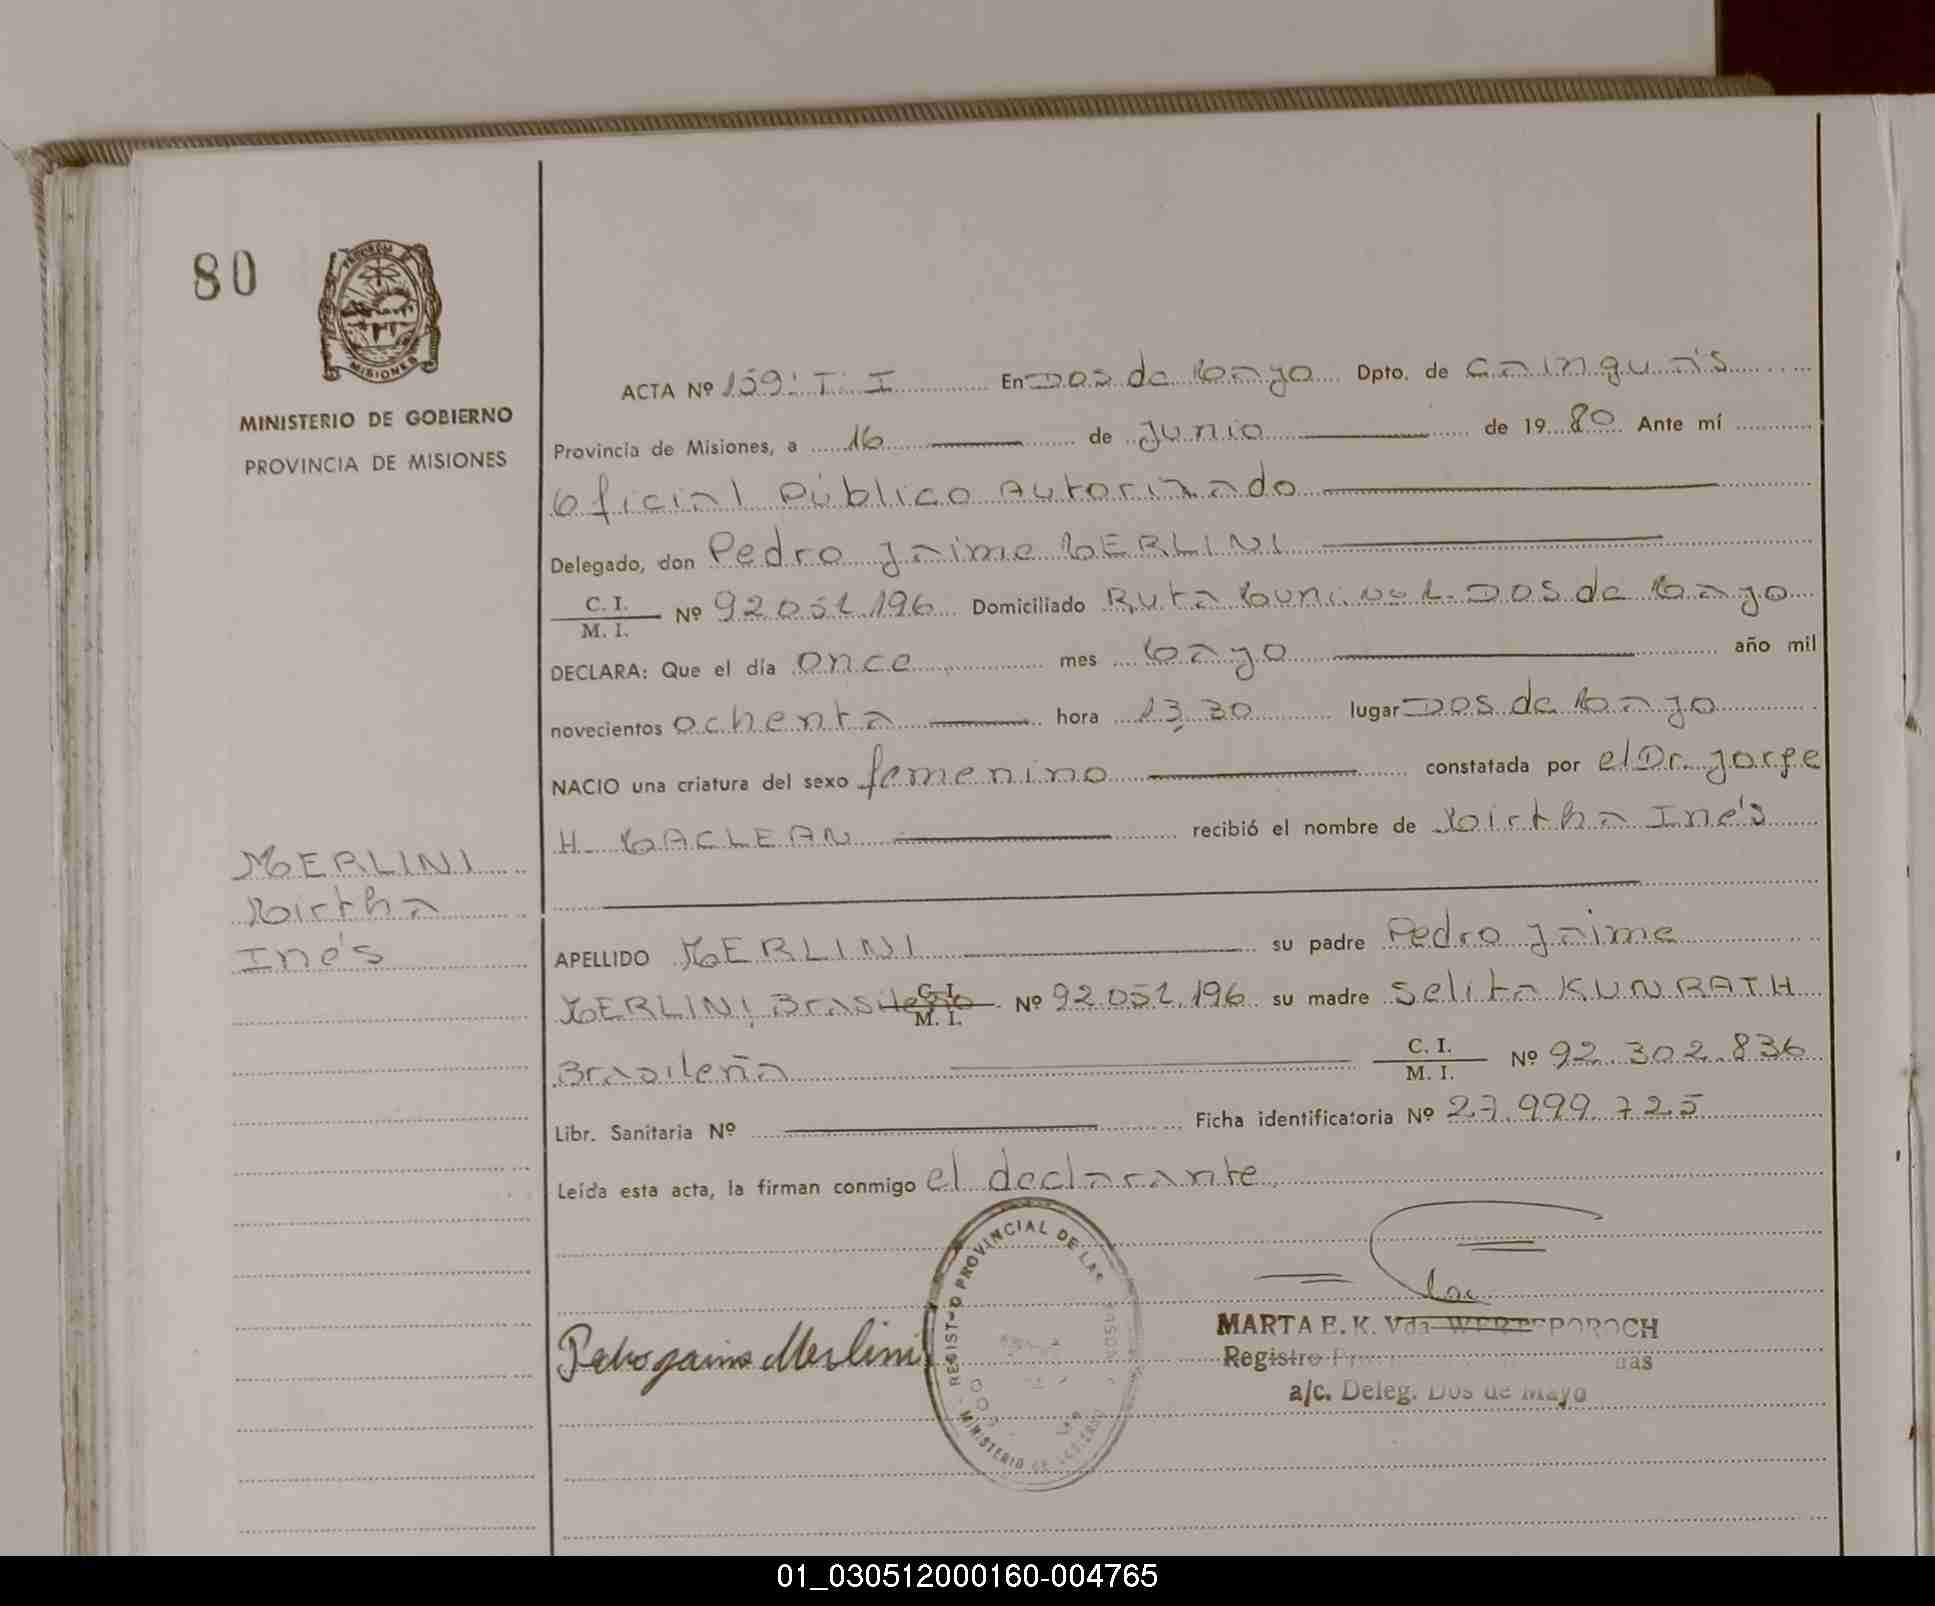 80
MISIONES
MINISTERIO DE GOBIERNO
PROVINCIA DE MISIONES
ACTA Nº 159: T: I En Dos de Mayo Dpto. de Cainguás
Provincia de Misiones, a 16 de Junio de 1980 Ante mí
Oficial Público Autorizado
Delegado, don Pedro Jaime MERLINI
C. I.
M. I. Nº 92.051.196 Domiciliado Ruta Dos de Mayo
DECLARA: Que el día once mes Mayo año mil
novecientos ochenta hora 13,30 lugar Dos de Mayo
NACIO una criatura del sexo femenino constatada por el Dr. Jorge
H. MACLEAN recibió el nombre de Mirtha Inés
MERLINI
Mirtha
Inés
APELLIDO MERLINI su padre Pedro Jaime
MERLINI, Brasileño C. I. M. I. Nº 92.051.196 su madre Selita KUNRATH
Brasileña C. I. M. I. Nº 92.302.836
Libr. Sanitaria Nº Ficha identificatoria Nº 27.999.725
Leída esta acta, la firman conmigo el declarante
REGISTRO PROVINCIAL DE LAS
MINISTERIO DE
Pedro Jaime Merlini
MARTA E. K. Vda
Registro
a/c. Deleg. Dos de Mayo
01_030512000160-004765